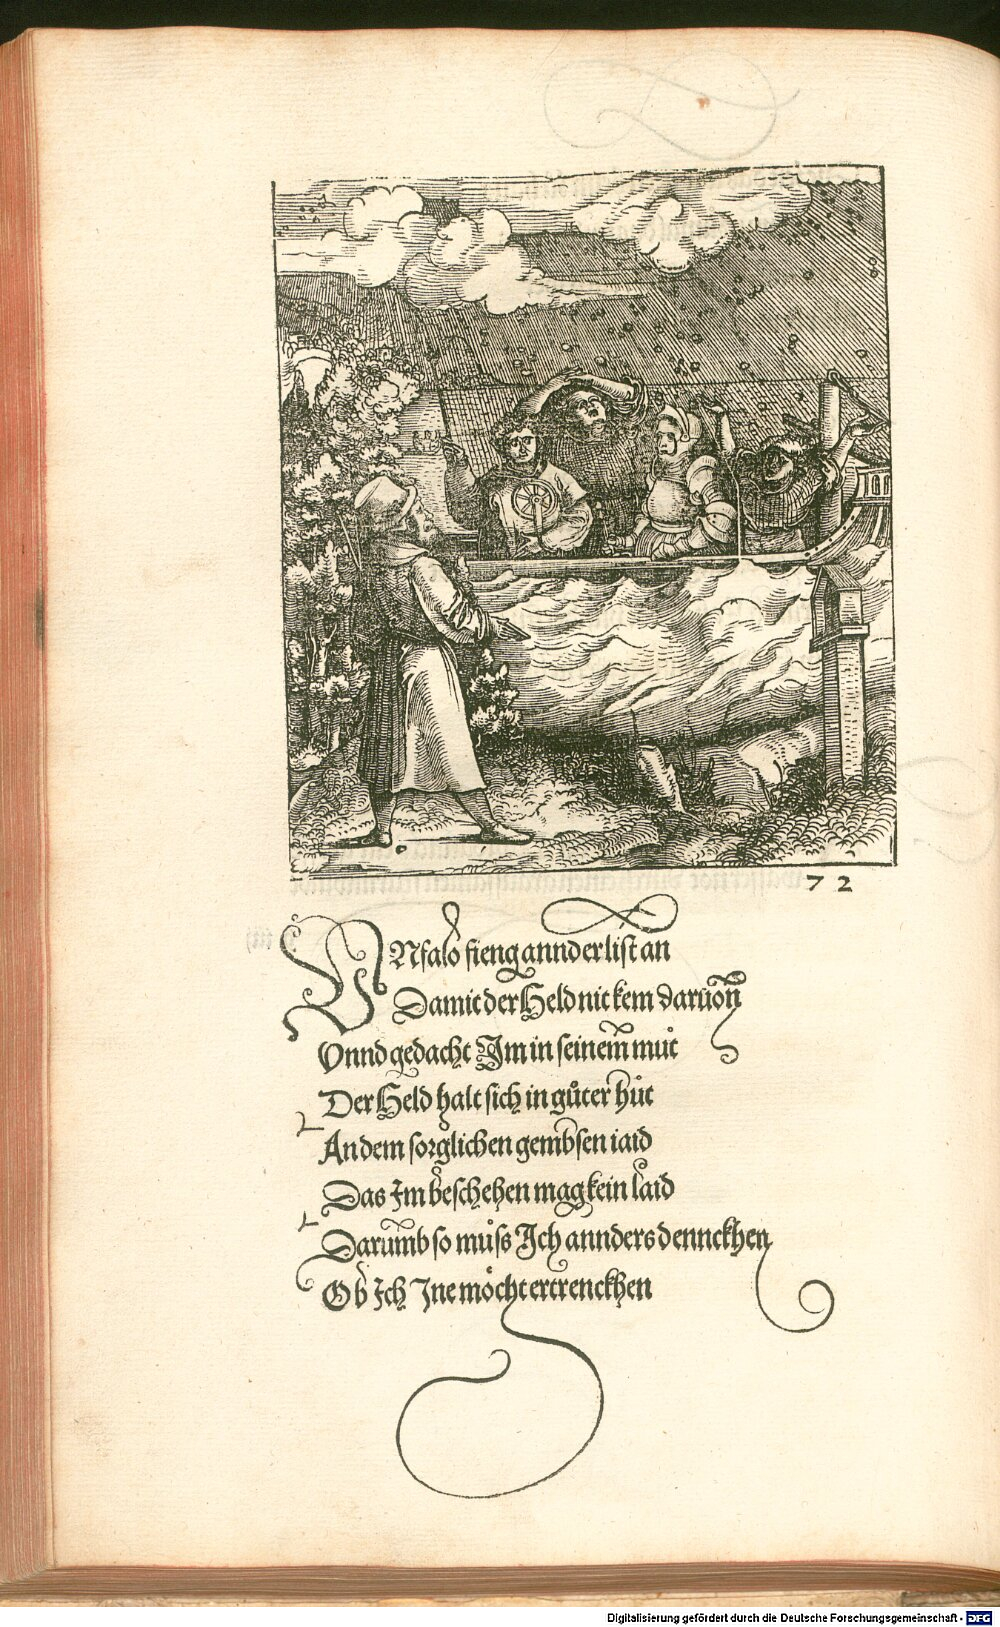 72
VNfalo fieng annder list an
Damit der Held nit kem daruon
Vnnd gedacht Im in seinem muͦt
Der Held halt sich in guͦter huͦt
An dem sorglichen gembsen iaid
Das Im beschehen mag kein laid
Darumb so muͦss Ich annders dennckhen
Ob Ich Ine möcht ertrenckhen
Digitalisierung gefördert durch die Deutsche Forschungsgemeinschaft - DFG